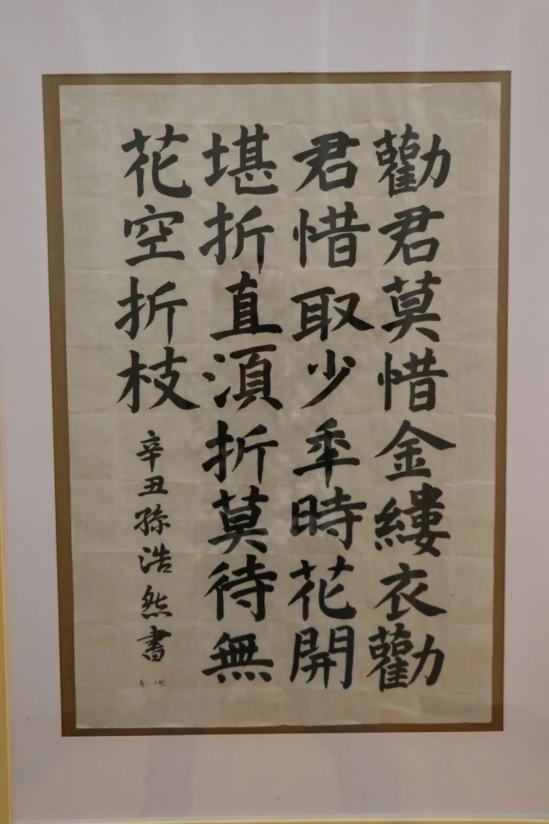 勸君莫惜金縷衣勸
君惜取少年時花開
堪折直須折莫待無
花空折枝
辛丑孫浩然書